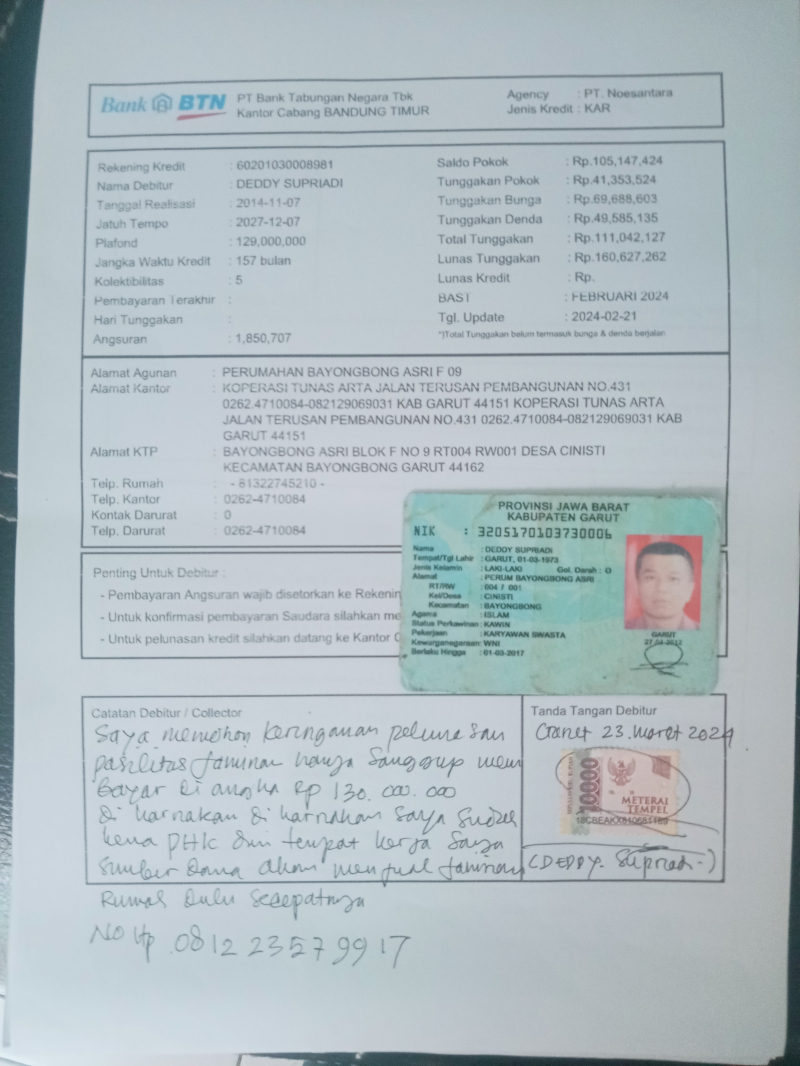 Bank BTN
PT Bank Tabungan Negara Tbk
Kantor Cabang BANDUNG TIMUR
Agency : PT. Noesantara
Jenis Kredit : KAR
Rekening Kredit : 60201030008981
Nama Debitur : DEDDY SUPRIADI
Tanggal Realisasi : 2014-11-07
Jatuh Tempo : 2027-12-07
Plafond : 129,000,000
Jangka Waktu Kredit : 157 bulan
Kolektibilitas : 5
Pembayaran Terakhir :
Hari Tunggakan :
Angsuran : 1,850,707
Saldo Pokok : Rp.105,147,424
Tunggakan Pokok : Rp.41,353,524
Tunggakan Bunga : Rp.69,688,603
Tunggakan Denda : Rp.49,585,135
Total Tunggakan : Rp.111,042,127
Lunas Tunggakan : Rp.160,627,262
Lunas Kredit : Rp.
BAST : FEBRUARI 2024
Tgl. Update : 2024-02-21
*)Total Tunggakan belum termasuk bunga & denda berjalan
Alamat Agunan : PERUMAHAN BAYONGBONG ASRI F 09
Alamat Kantor : KOPERASI TUNAS ARTA JALAN TERUSAN PEMBANGUNAN NO.431
0262.4710084-082129069031 KAB GARUT 44151 KOPERASI TUNAS ARTA
JALAN TERUSAN PEMBANGUNAN NO.431 0262.4710084-082129069031 KAB
GARUT 44151
Alamat KTP : BAYONGBONG ASRI BLOK F NO 9 RT004 RW001 DESA CINISTI
KECAMATAN BAYONGBONG GARUT 44162
Telp. Rumah : - 81322745210 -
Telp. Kantor : 0262-4710084
Kontak Darurat : 0
Telp. Darurat : 0262-4710084
PROVINSI JAWA BARAT
KABUPATEN GARUT
NIK : 3205170103730006
Nama : DEDDY SUPRIADI
Tempat/Tgl Lahir : GARUT, 01-03-1973
Jenis Kelamin : LAKI-LAKI Gol. Darah : O
Alamat : PERUM BAYONGBONG ASRI
RT/RW : 004 / 001
Kel/Desa : CINISTI
Kecamatan : BAYONGBONG
Agama : ISLAM
Status Perkawinan : KAWIN
Pekerjaan : KARYAWAN SWASTA
Kewarganegaraan : WNI
Berlaku Hingga : 01-03-2017
GARUT
Penting Untuk Debitur :
- Pembayaran Angsuran wajib disetorkan ke Rekenin
- Untuk konfirmasi pembayaran Saudara silahkan me
- Untuk pelunasan kredit silahkan datang ke Kantor C
Catatan Debitur / Collector
Saya memohon keringanan pelunasan
pasilitas Jaminan hanya Sanggup mem
bayar di angka Rp 130.000.000
di karnakan di karnakan Saya sudah
kena PHK dari tempat kerja Saya
Sumber Dana akan menjual Jaminan
Rumah Dulu Secepatnya
No Hp .0812 23579917
Tanda Tangan Debitur
Garut 23. Maret 2024
10000
METERAI
TEMPEL
(DEDDY. Supriadi-)